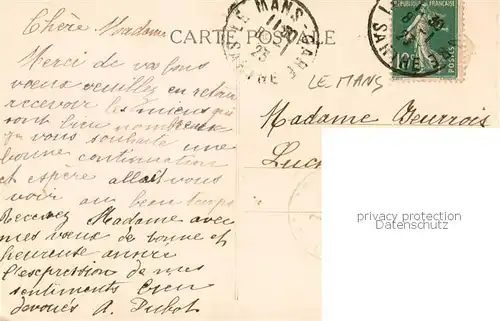 Chère Madame
Merci de vos bons
vœux veuillez en retour
recevoir les miens qui
sont bien nombreux
je vous souhaite une
bonne continuation
et espère allait vous
voir au beau temps
Recevez Madame avec
mes vœux de bonne et
heureuse année
l'expression de mes
sentiments bien
dévoués A. Dubot
CARTE POSTALE
LE MANS
SARTHE
LE MANS
Madame Beurrois
Luc
privacy protection
Datenschutz